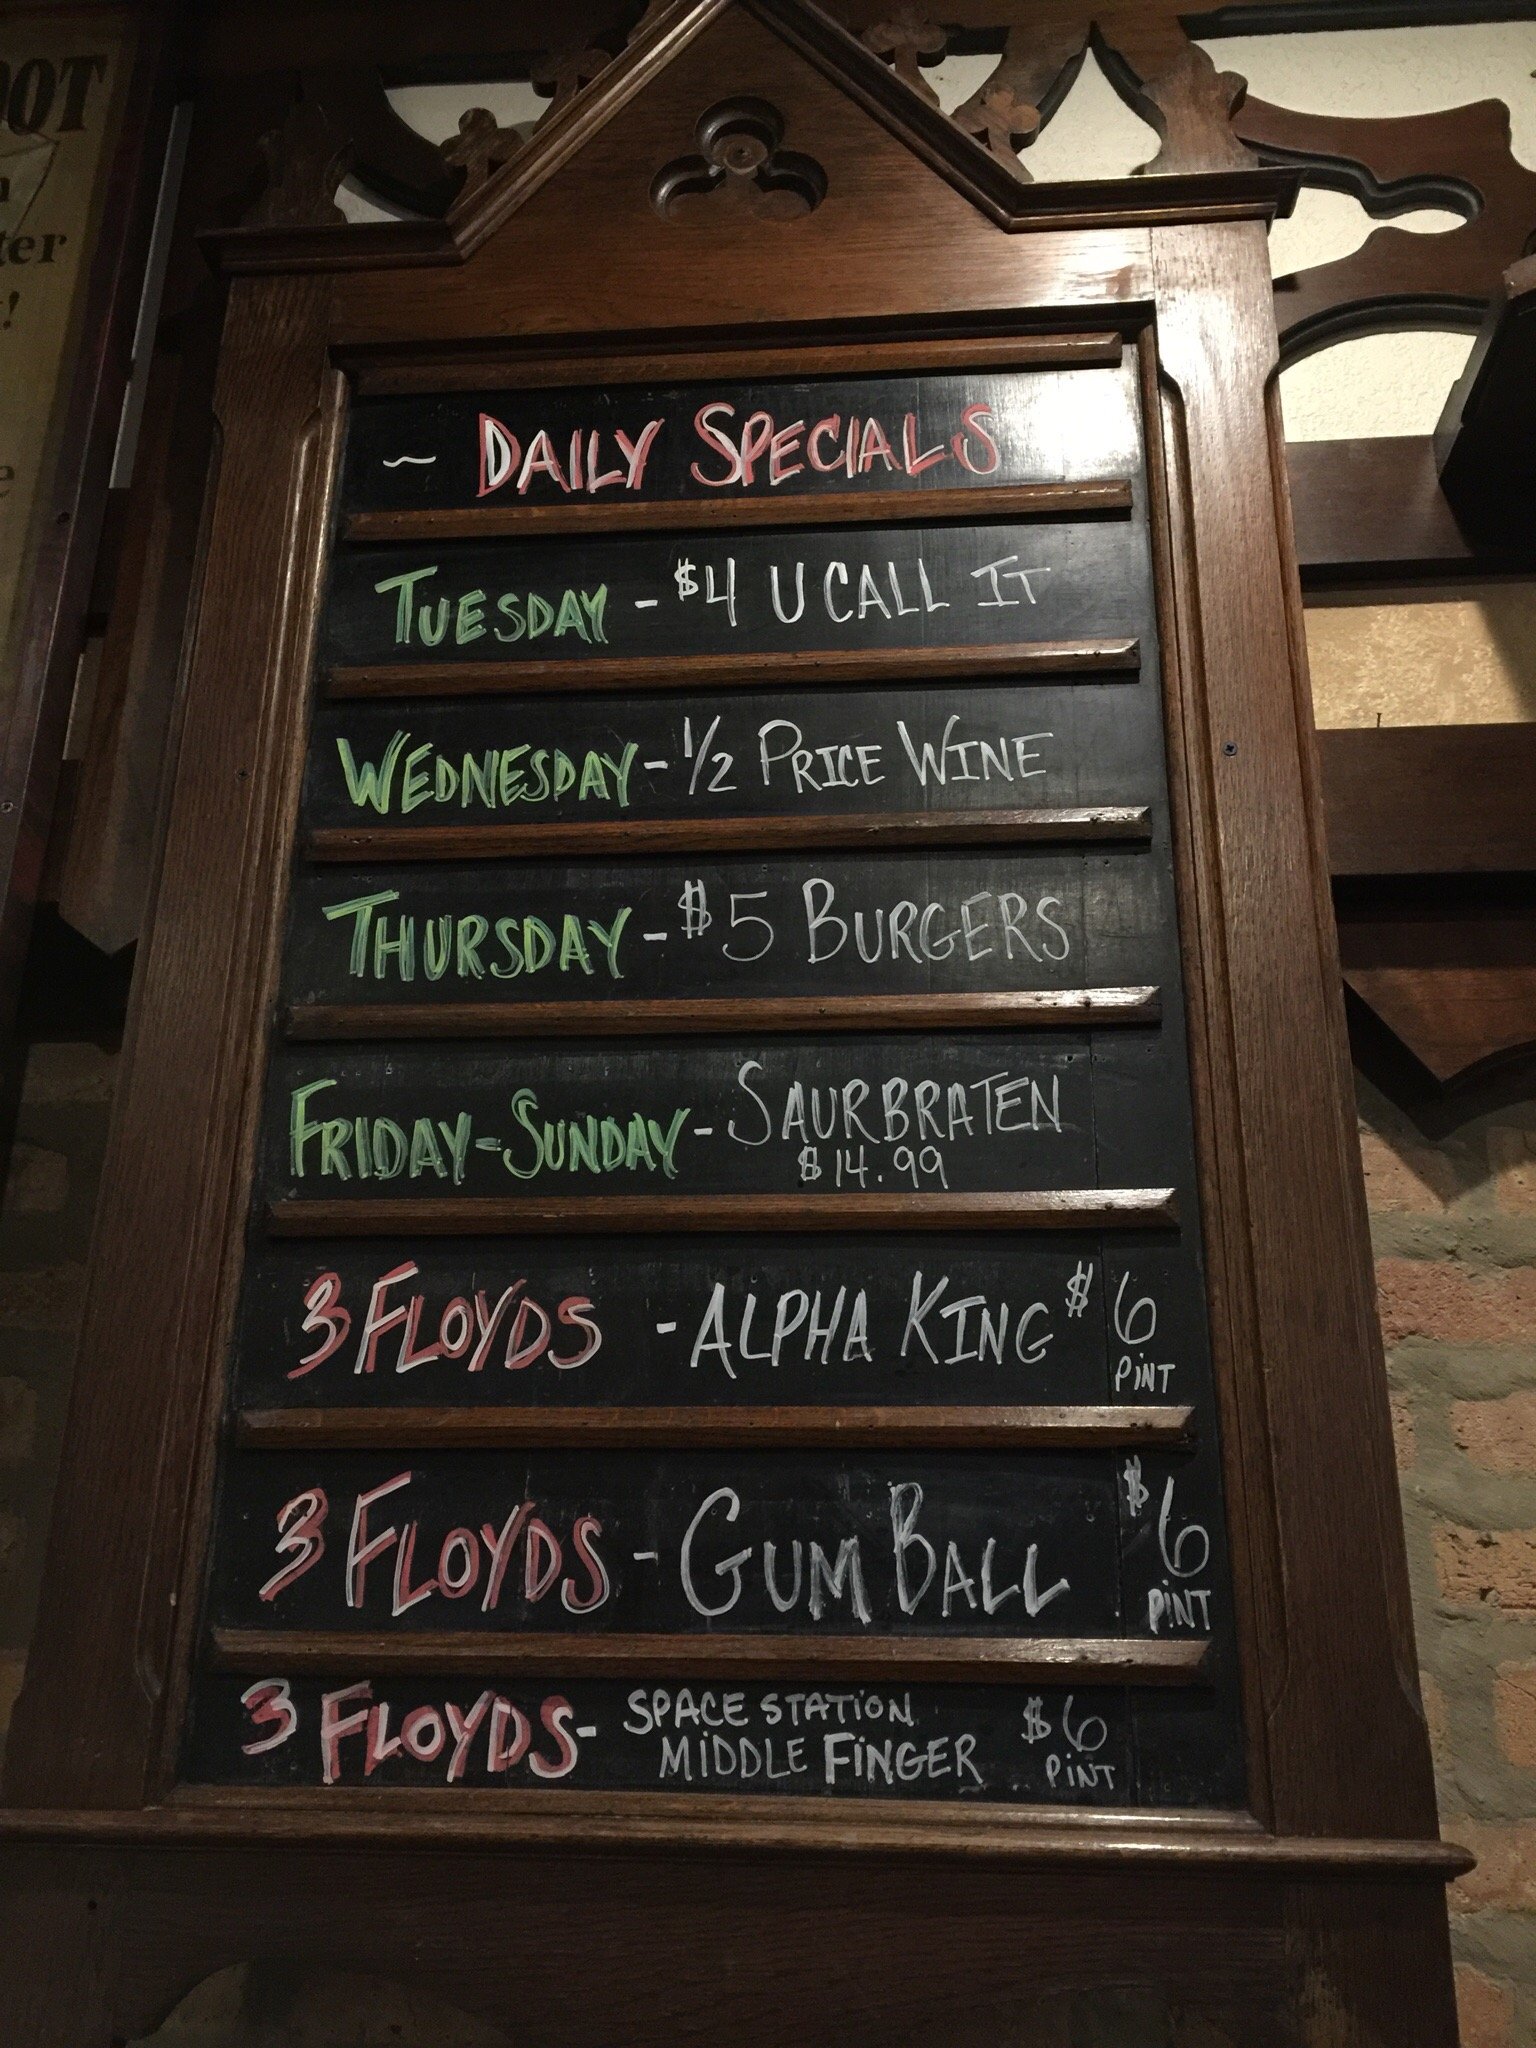 ~ DAILY SPECIALS
TUESDAY - $4 U CALL IT
WEDNESDAY - 1/2 PRICE WINE
THURSDAY - $5 BURGERS
FRIDAY - SUNDAY - SAURBRATEN
$14.99
3 FLOYDS - ALPHA KING $6
PINT
3 FLOYDS - GUM BALL $6
PINT
3 FLOYDS - SPACE STATION
MIDDLE FINGER $6
PINT